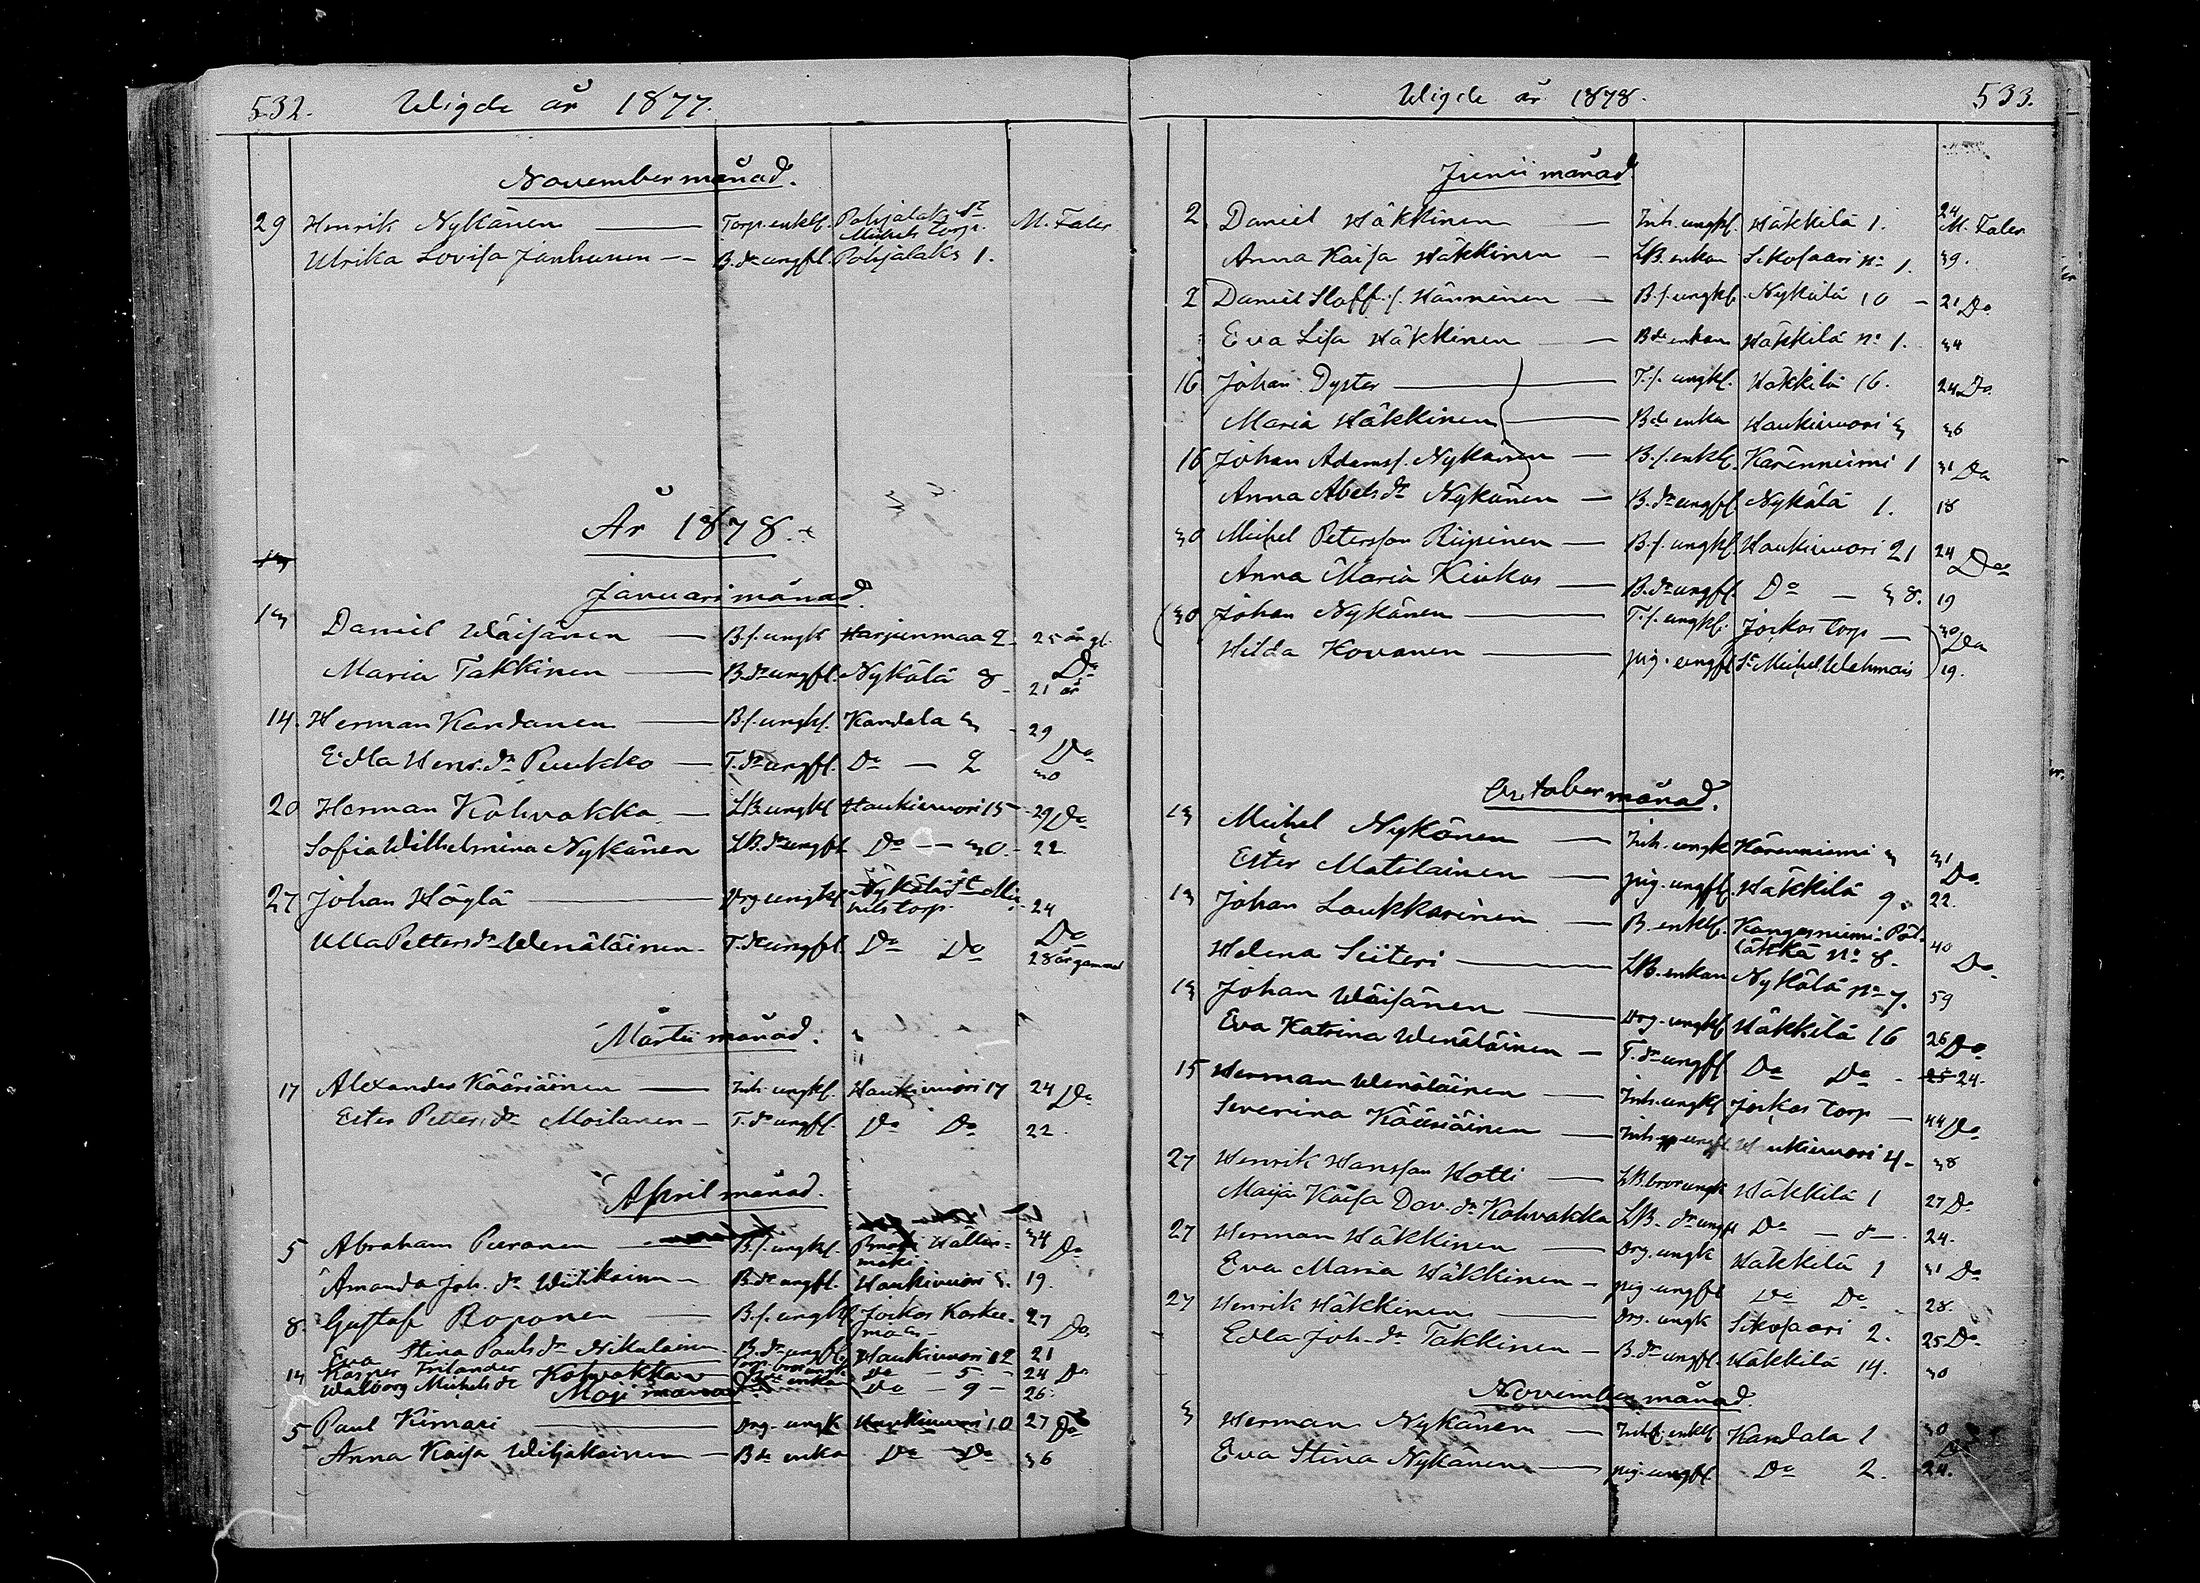 532. Wigde år 1877.
November månad.
29 Henrik Nykänen Torp. enkl. Pohjalaks St Michels Torp. M. Faler
Ulrika Lovisa Janhunen B. dr ungfl. Pohjalaks 1.
År 1878.
Januari månad.
13 Daniel Wäisänen B. s. ungk Harjunmaa 2 25 år gl.
Maria Takkinen B. dr ungfl. Nykälä 8 Do 21 år
14. Herman Kandanen B. s. ungk. Kandala 3 29
Edla Henr. dr Puukko T. dr ungfl. Do 2 Do 30
20 Herman Kohvakka LB. ungkl Haukivuori 15 29 Do
Sofia Wilhelmina Nykänen LB. dr ungfl Do 30 22
27 Johan Höglä Drg ungkl Nykälä St Michels torp. 24
Ulla Petters dr Wenäläinen T. dr ungfl. Do Do Do 28 år gammal
Martii månad.
17 Alexander Kääriäinen Inh. ungkl. Haukivuori 17 24 Do
Ester Petters dr Moilanen T. dr ungfl. Do Do 22
April månad.
5 Abraham Puranen B. s. ungkl. 34 Do
Amanda Joh. dr Wiitikainen B. dr ungfl. Haukivuori 5. 19.
8. Gustaf Roponen B. s. ungkl Joikos 27 Do
Eva Stina Pauls dr Nikulainen B. dr ungfl. Haukivuori 12 21
14 Kasper Frilander Do 5 24 Do
Walborg Michels dr Kohvakka enkan Do 9 26
Maji månad.
5 Paul Kimari Drg. ungk Haukivuori 10 27 Do
Anna Kaisa Wiljakainen B. dr enka Do Do 36
Wigde år 1878. 533.
Junii månad
2 Daniel Häkkinen Inh. ungkl. Häkkilä 1. 24 M. Faler
Anna Kaisa Häkkinen LB. enkan Sikosaari No 1. 39.
2 Daniel Staff. s. Hänninen B. s. ungkl. Nykälä 10 21 Do
Eva Lisa Häkkinen B. dr enkan Häkkilä No 1. 34
16 Johan Dyster T. s. ungkl. Häkkilä 16. 24 Do
Maria Häkkinen B. dr enka Haukivuori 3 36
16 Johan Adams s. Nykänen B. s. enkl. Kärenniemi 1 31 Do
Anna Abels dr Nykänen B. dr ungfl Nykälä 1. 18
30 Michel Petersson Riipinen B. s. ungkl Haukivuori 21 24 Do
Anna Maria Kiukas B. dr ungfl. Do 38. 19
30 Johan Nykänen T. s. ungkl. Joikos Torp 30 Do
Hilda Kovanen pig. ungfl St Michel Wahmais 19.
October månad.
13 Michel Nykänen Inh. ungk Kärenniemi 3 31 Do
Ester Matilainen pig. ungfl. Häkkilä 9. 22.
13 Johan Laukkarinen B. enkl. Kangasniemi Pöllätkkä No 8. 40 Do
Helena Siiteri LB. enkan Nykälä No 7. 59
13 Johan Wäisänen Drg. ungkl Häkkilä 16 26 Do
Eva Katrina Wenäläinen T. dr ungfl Do Do 24.
15 Herman Wenäläinen Inh. ungkl Joikos Torp 44 Do
Severina Kääriäinen Inh. ungfl. Haukivuori 4 38
27 Henrik Hansson Hotti LB. bror ungk Häkkilä 1 27 Do
Maija Kaisa Dav. dr Kohvakka LB. dr ungfl Do 8 24.
27 Herman Häkkinen Drg. ungk Häkkilä 1 31 Do
Eva Maria Häkkinen pig. ungfl Do Do 28.
27 Henrik Häkkinen Drg. ungk Sikosaari 2. 25 Do
Edla Joh. dr Takkinen B. dr ungfl. Häkkilä 14. 30
November månad.
3 Herman Nykänen Inh. enkl. Kandala 1 30 Do
Eva Stina Nykänen pig. ungfl. Do 2. 24.